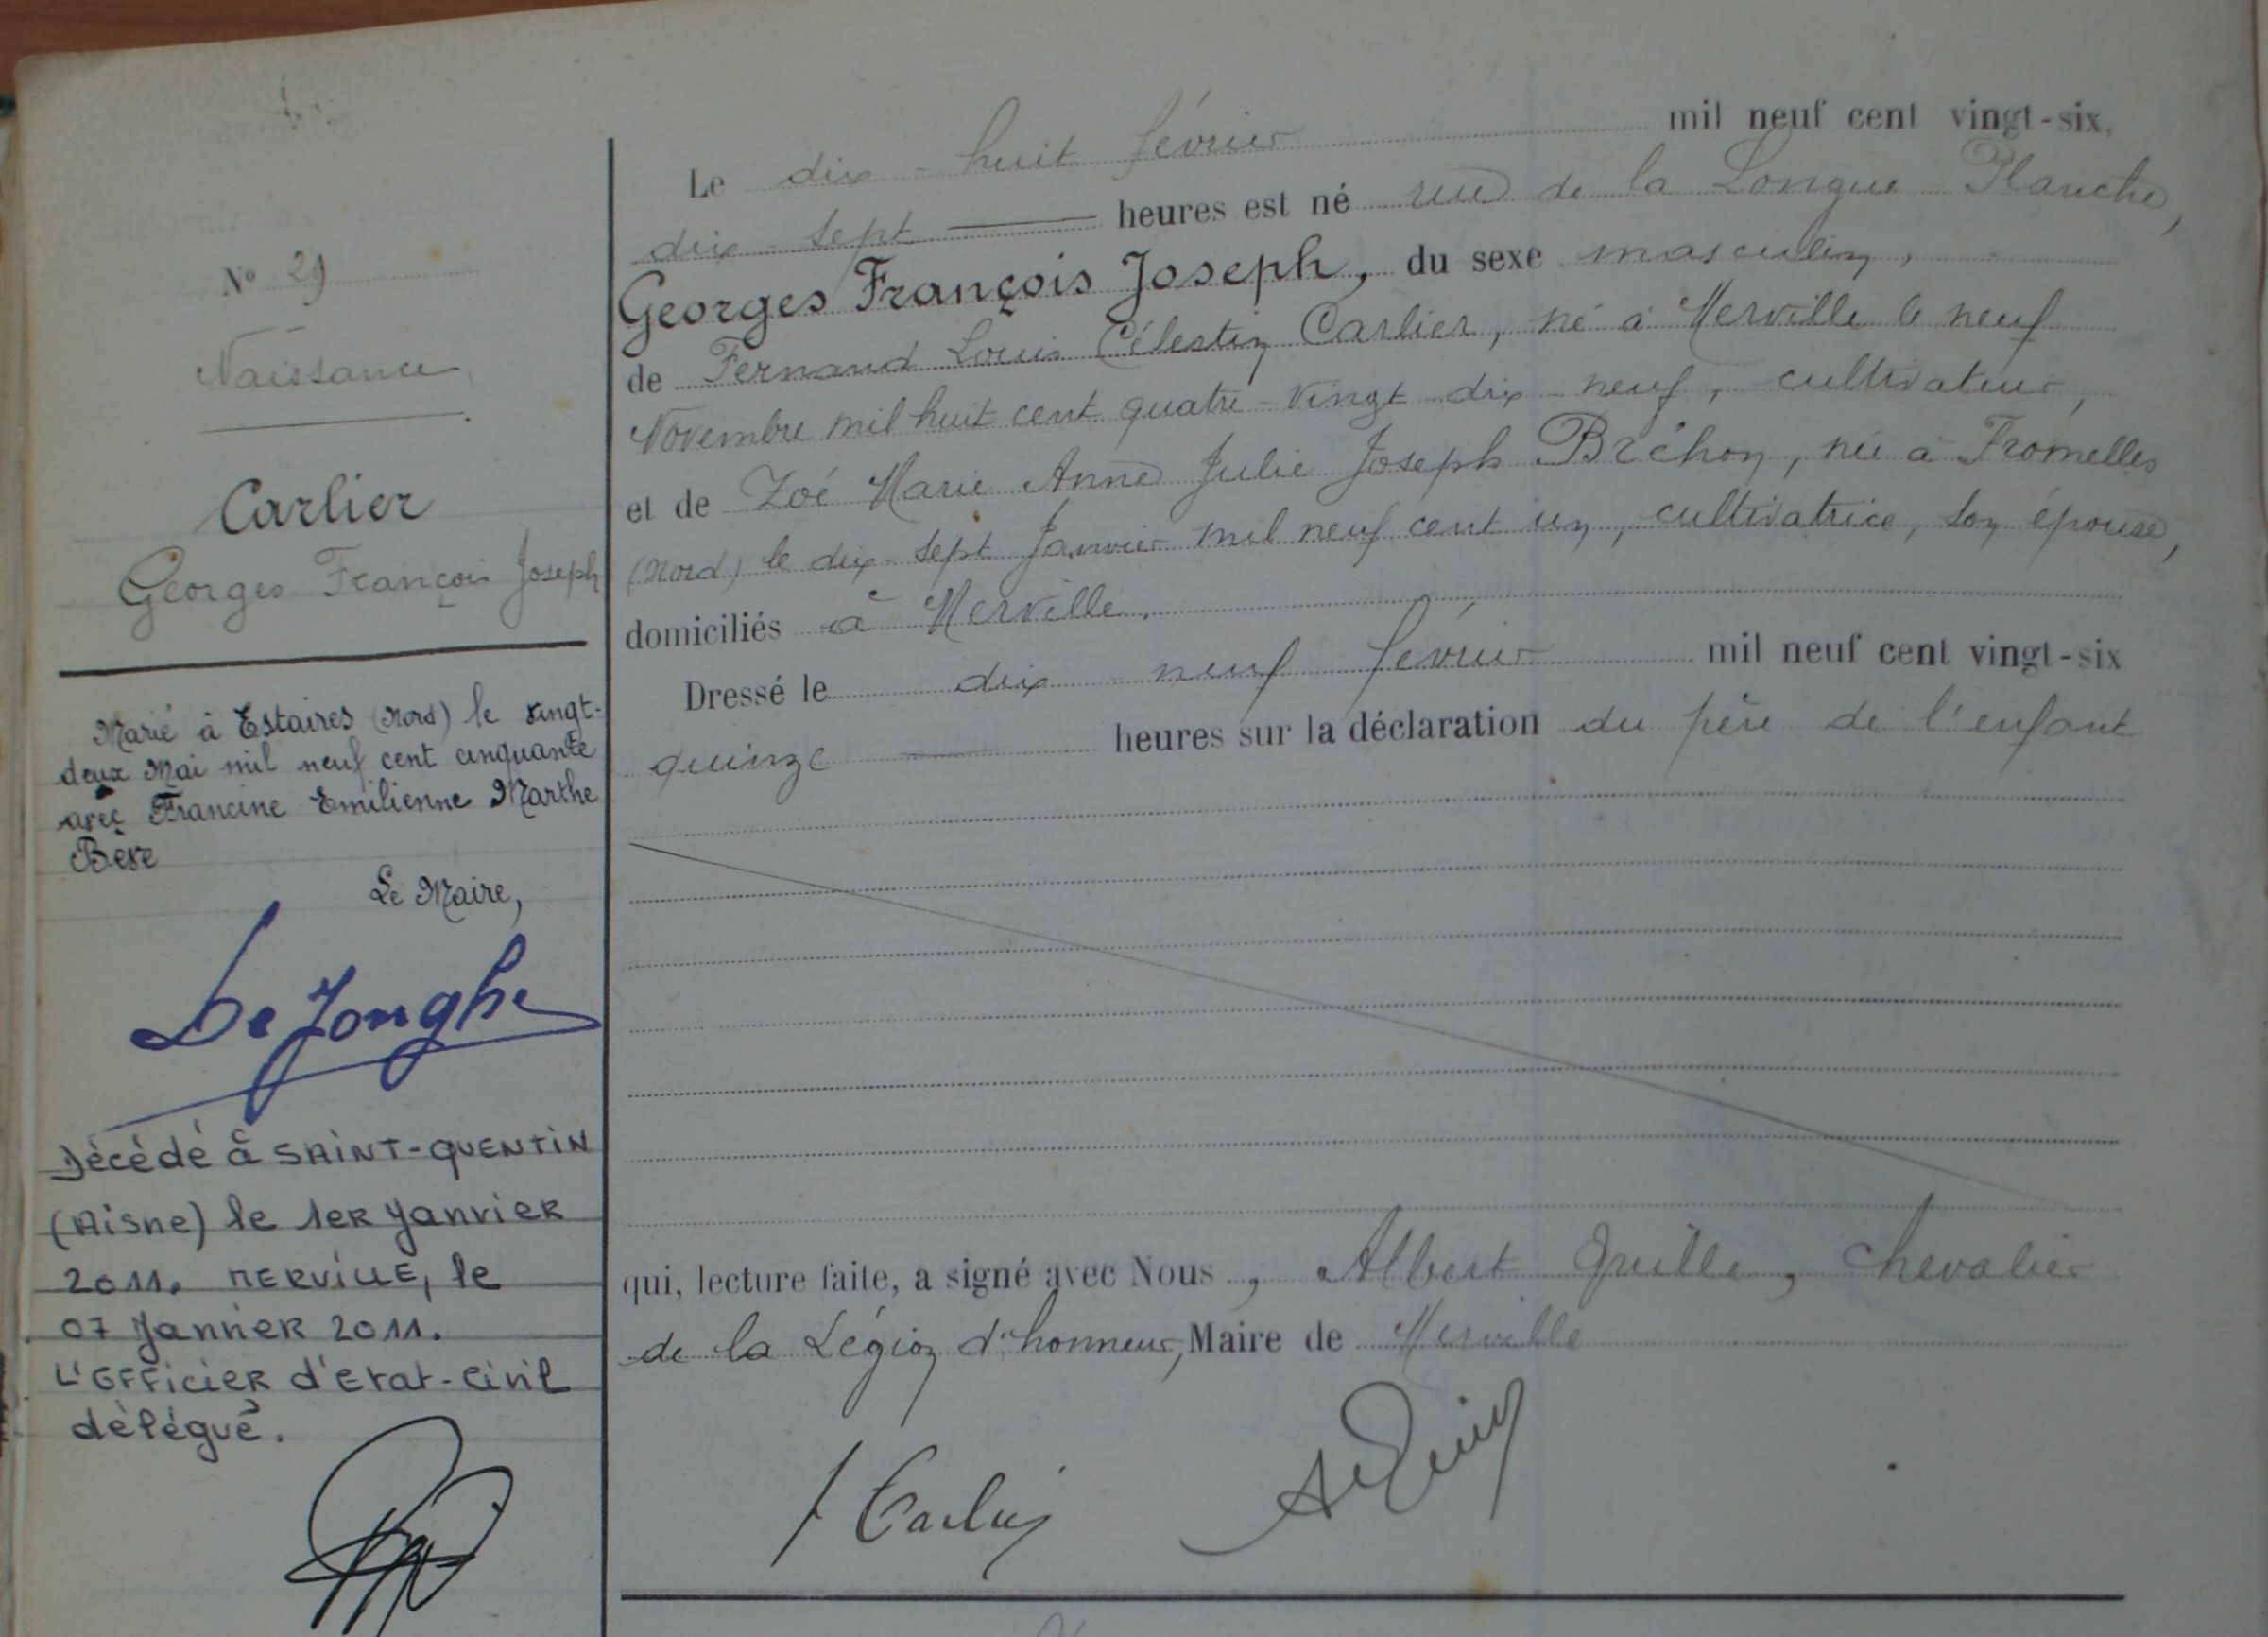 N° 29
Naissance
Carlier
Georges François Joseph
Marié à Estaires (Nord) le vingt-
deux Mai mil neuf cent cinquante
avec Francine Emilienne Marthe
Beve
Le Maire,
De Jonghe
Décédé à SAINT-QUENTIN
(Aisne) le 1er Janvier
2011. MERVILLE, le
07 Janvier 2011.
L'Officier d'Etat-Civil
délégué.
Le dix-huit février mil neuf cent vingt-six,
dix-sept heures est né rue de la Longue Planche,
Georges François Joseph, du sexe masculin,
de Fernand Louis Célestin Carlier, né à Merville le neuf
Novembre mil huit cent quatre-vingt-dix-neuf, cultivateur,
et de Zoé Marie Anne Julie Joseph Bréhon, née à Fromelles
(Nord) le dix-sept Janvier mil neuf cent un, cultivatrice, son épouse,
domiciliés à Merville.
Dressé le dix-neuf février mil neuf cent vingt-six
quinze heures sur la déclaration du père de l'enfant
qui, lecture faite, a signé avec Nous, Albert chevalier
de la Légion d'honneur, Maire de Merville
f Carlier